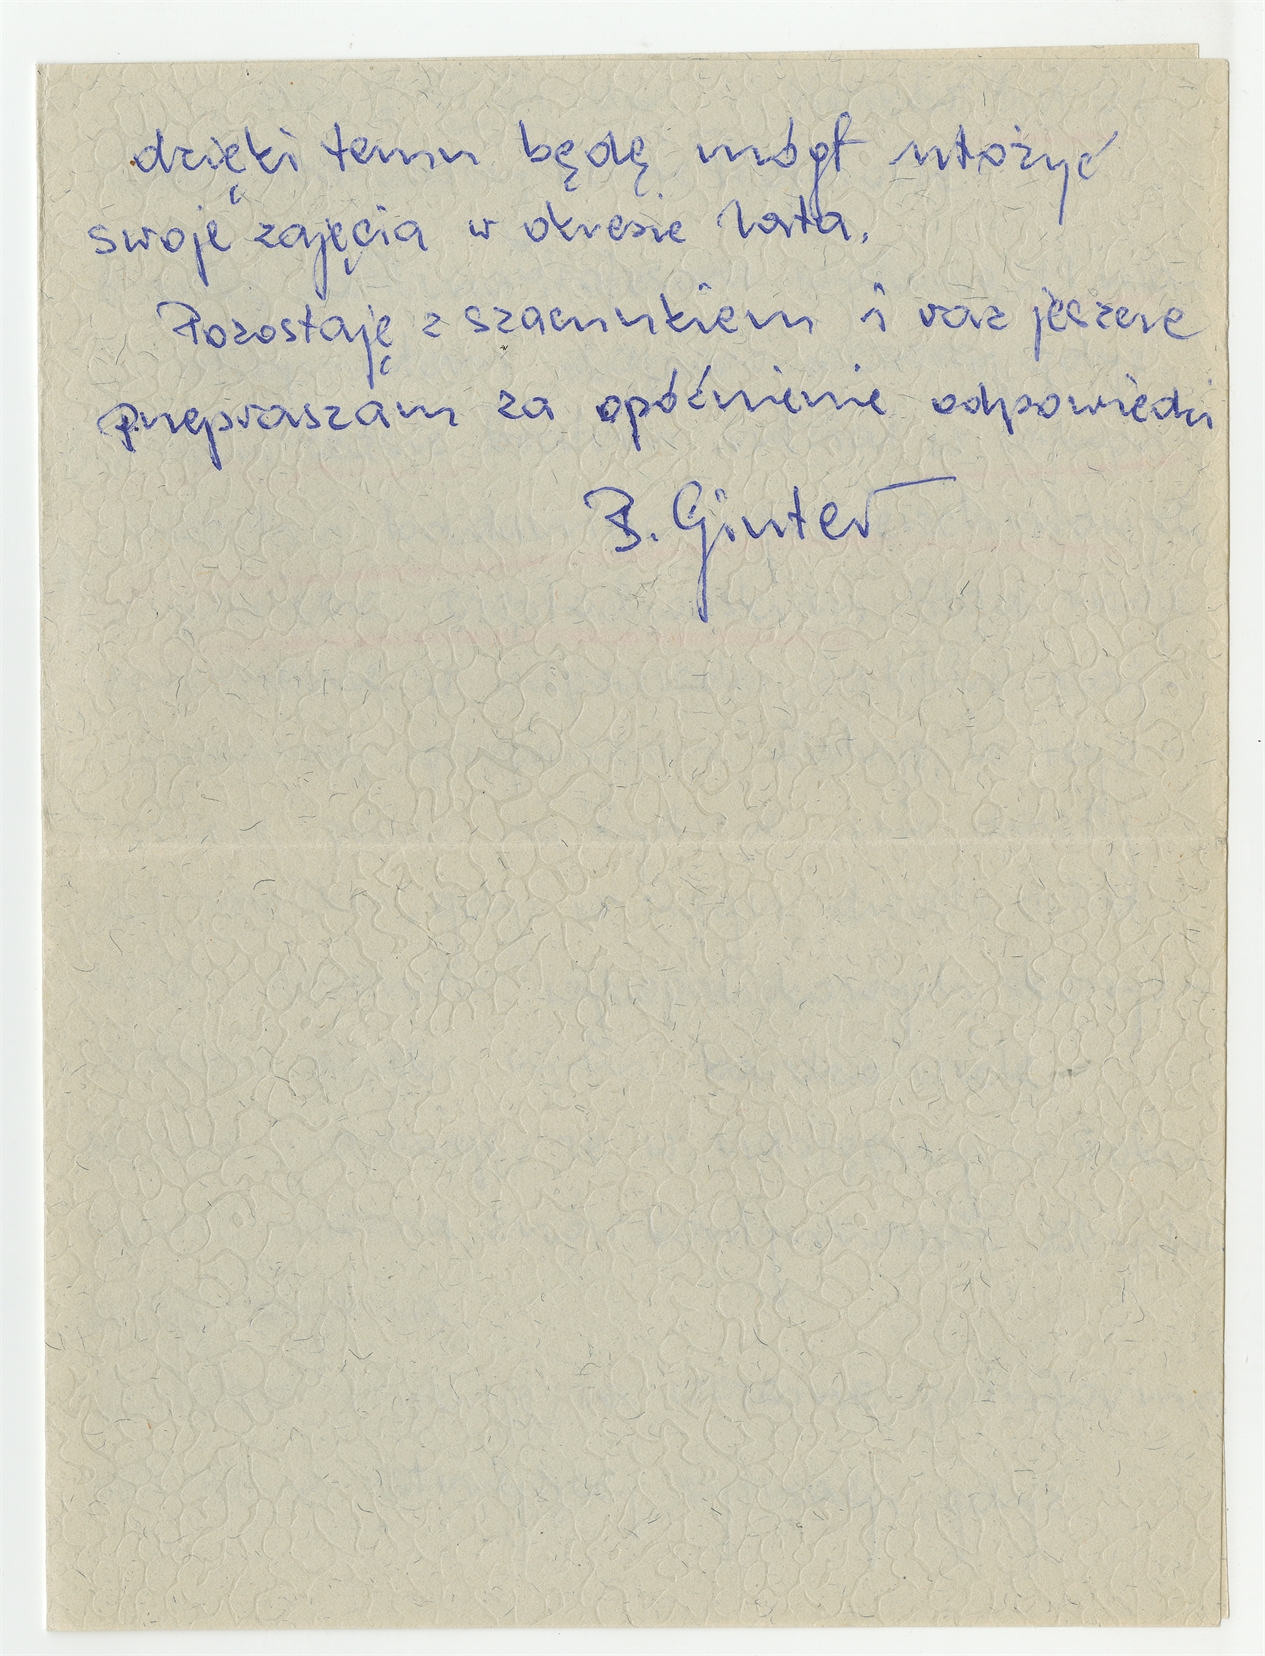 dzięki temu będę mógł ułożyć
swoje zajęcia w okresie lata.
Pozostaję z szacunkiem i raz jeszcze
przepraszam za opóźnienie odpowiedzi
B. Ginter